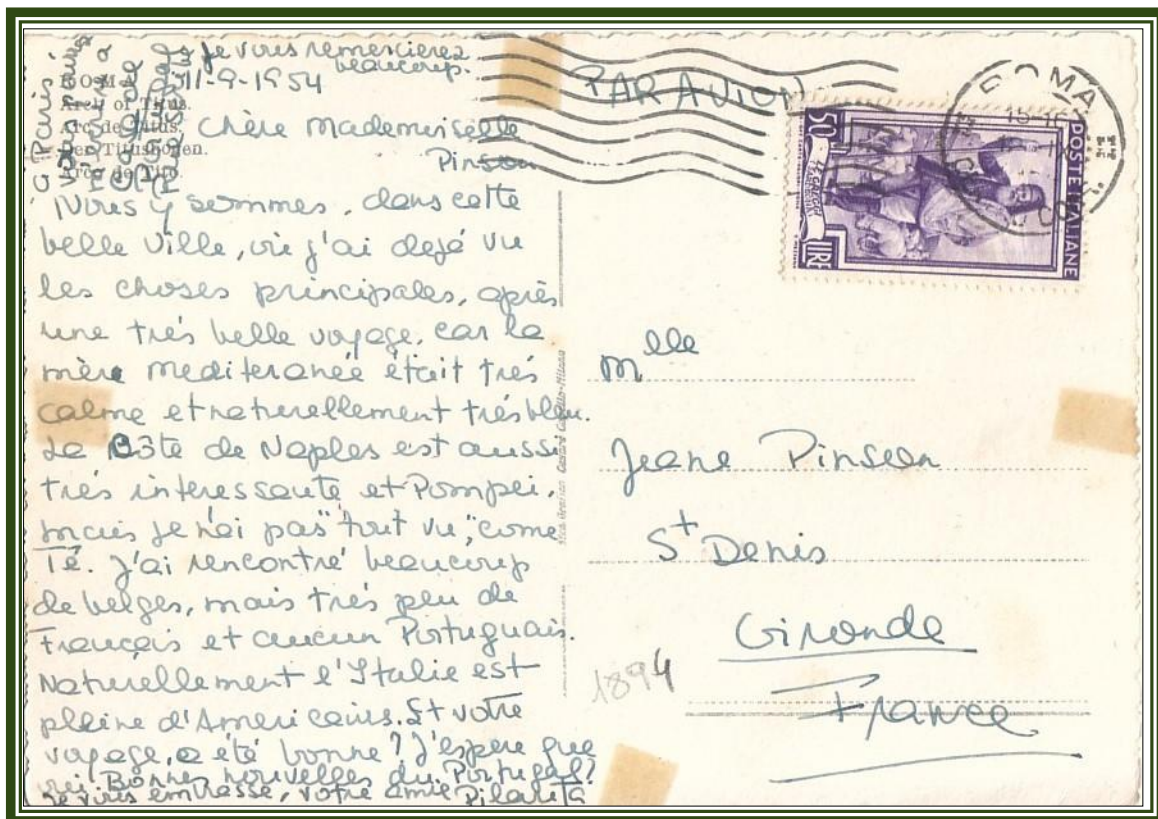 Je vous remercierez
beaucoup.
11-9-1954
ROMA
Arch of Titus.
Arc de Titus.
Der Titusbogen.
Arco de Tito.
à Paris
Chère Mademoiselle
Pinson
Nous y sommes, dans cette
belle ville, où j'ai dejé vu
les choses principales, après
une trés belle voyage, car la
mère mediteranée était trés
calme et naturellement trés bleu.
La Côte de Naples est aussi
trés interessante et Pompei,
mais je n'ai pas "tout vu", come
Té. J'ai rencontré beaucoup
de belges, mais trés peu de
Français et aucun Portuguais.
Naturellement l'Italie est
pleine d'Americains. Et votre
voyage, a été bonne? J'espere que
oui. Bonnes nouvelles du Portugal?
Je vous embrasse, votre amie Pilarita
PAR AVION
ROMA
15-16
50
LIRE
POSTE ITALIANE
Mlle
Jeane Pinson
St Denis
Gironde
France
1894